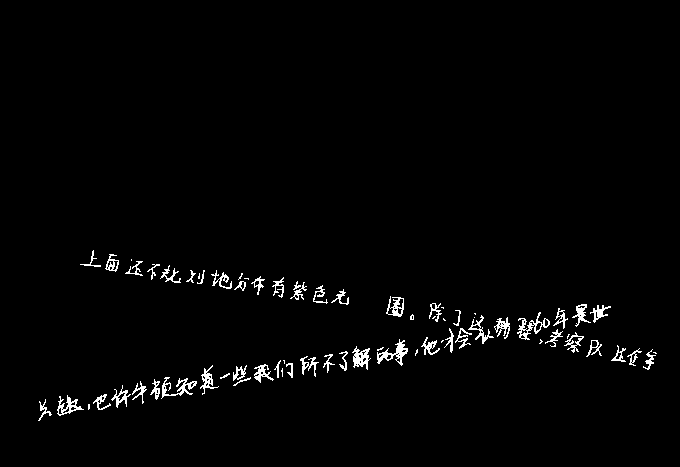 上面还不规则地分布有紫色光圈。除了这 60年是世
兴趣,也许牛顿知道一些我们所不了解的事,他才会 考察队还在等